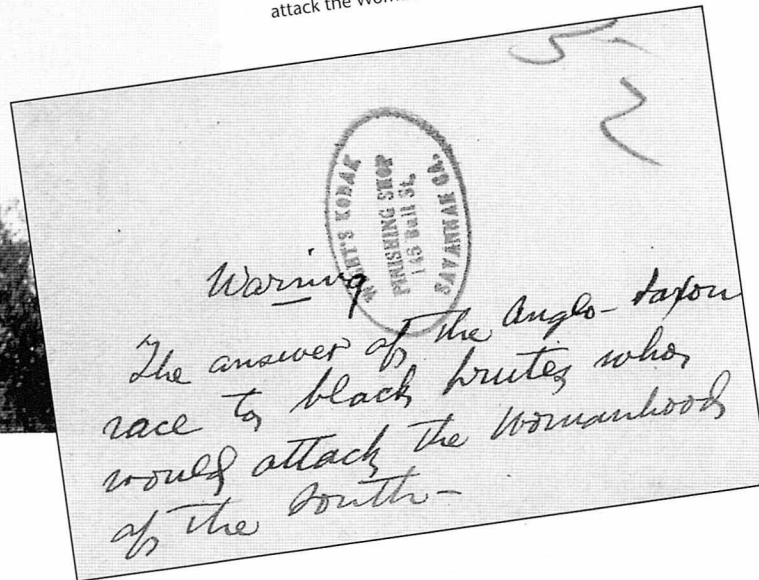 attack the
KODAK
FINISHING SHOP
145 Bull St.
SAVANNAH GA.
Warning
The answer of the Anglo-Saxon
race to black brutes who
would attack the Womanhood
of the South-